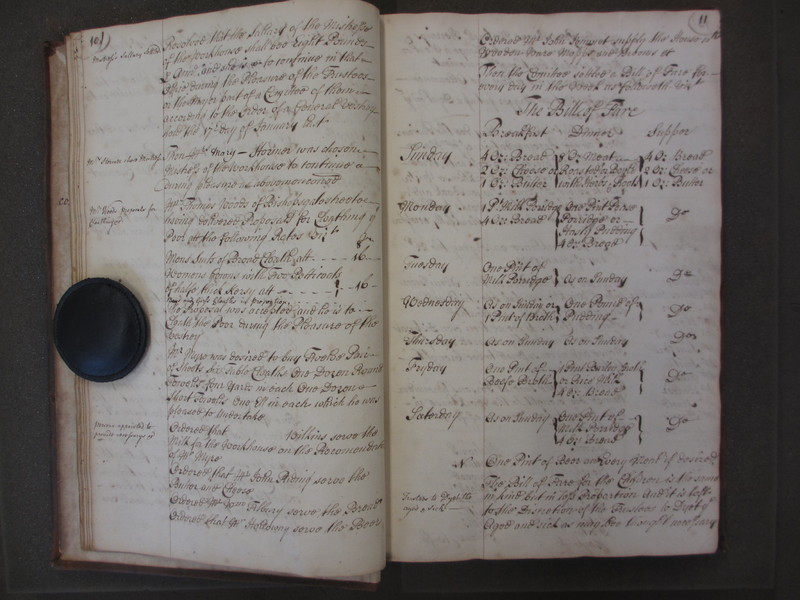 10
Mistress Sallary settled
Resolved that the Sallary of the Mistress
of the Workhouse shall be Eight Pounds
Ann and she is to continue in that
Office during the Pleasure of the Trustees
or the Major part of a Comittee of them
according to the Order of a General Vestry
date the 17 day of January last
Mary Horner was chosen
Mistress of the Workhouse to continue
during pleasure as abovementioned
Mr Woods Proposals for
Cloathing
Mr Thomas Woods of Bishopsgate
having delivered Proposals for Cloathing ye
Poor at the following Rates Vizt
Mens Suits of Broad Cloath att 16
Womens Gowns with Two Petticoats
of half thick Kersy att 16
The Proposal was accepted and he is to
Cloath the Poor during the Pleasure of the
Vestry
Mr was desired to buy Twelve Pair
of Sheets six Table Cloaths One Dozen
Towells four Yards in each One Dozen
Short Towells One Ell in each which he was
pleased to undertake
Persons appointed to
provide
Ordered that Wilkins serve the
Milk for the Workhouse on the Recomendation
of Mr
Ordered that Mr John serve the
Butter and Cheese
Ordered Tilbury serve the Bread
Ordered that Mr Holloway serve the Beer
11
Ordered Mr John supply the House with
Wooden Ware Mopps and Brooms &c
Then the Comittee settled a Bill of Fare for
every day in the Week as followeth Vizt
The Bill of Fare
Breakfast Dinner Supper
Sunday 4 Oz: Bread 8 Oz Meat 4 Oz Bread
2 Oz: Cheese or Roasted or Boyld 2 Oz: Cheese or
1 Oz: Butter with Herbs Roots 1 Oz: Butter
Monday 1 Pt Milk Porridge One Pint Pease
4 Oz: Bread Porridge or Do
Hasty Pudding
4 Oz: Bread
Tuesday One Pint of
Milk Porridge As on Sunday Do
Wednesday As on Sunday or One Pound of
1 Pint of Broth Pudding Do
Thursday As on Sunday As on Sunday Do
Fryday One Pint of
Beefe Broth or Do
4 Oz: Bread
Saterday As on Sunday One Pint of
Milk Porridge Do
4 Oz: Bread
One Pint of Beer at every Meal if desired
The Bill of Fare for the Children is the same
in kind but in less Proportion and it is left
to the Discretion of the Trustees to Dyet ye
Aged and sick as may be thought necessary
Trustees to Dyet the
aged & sick